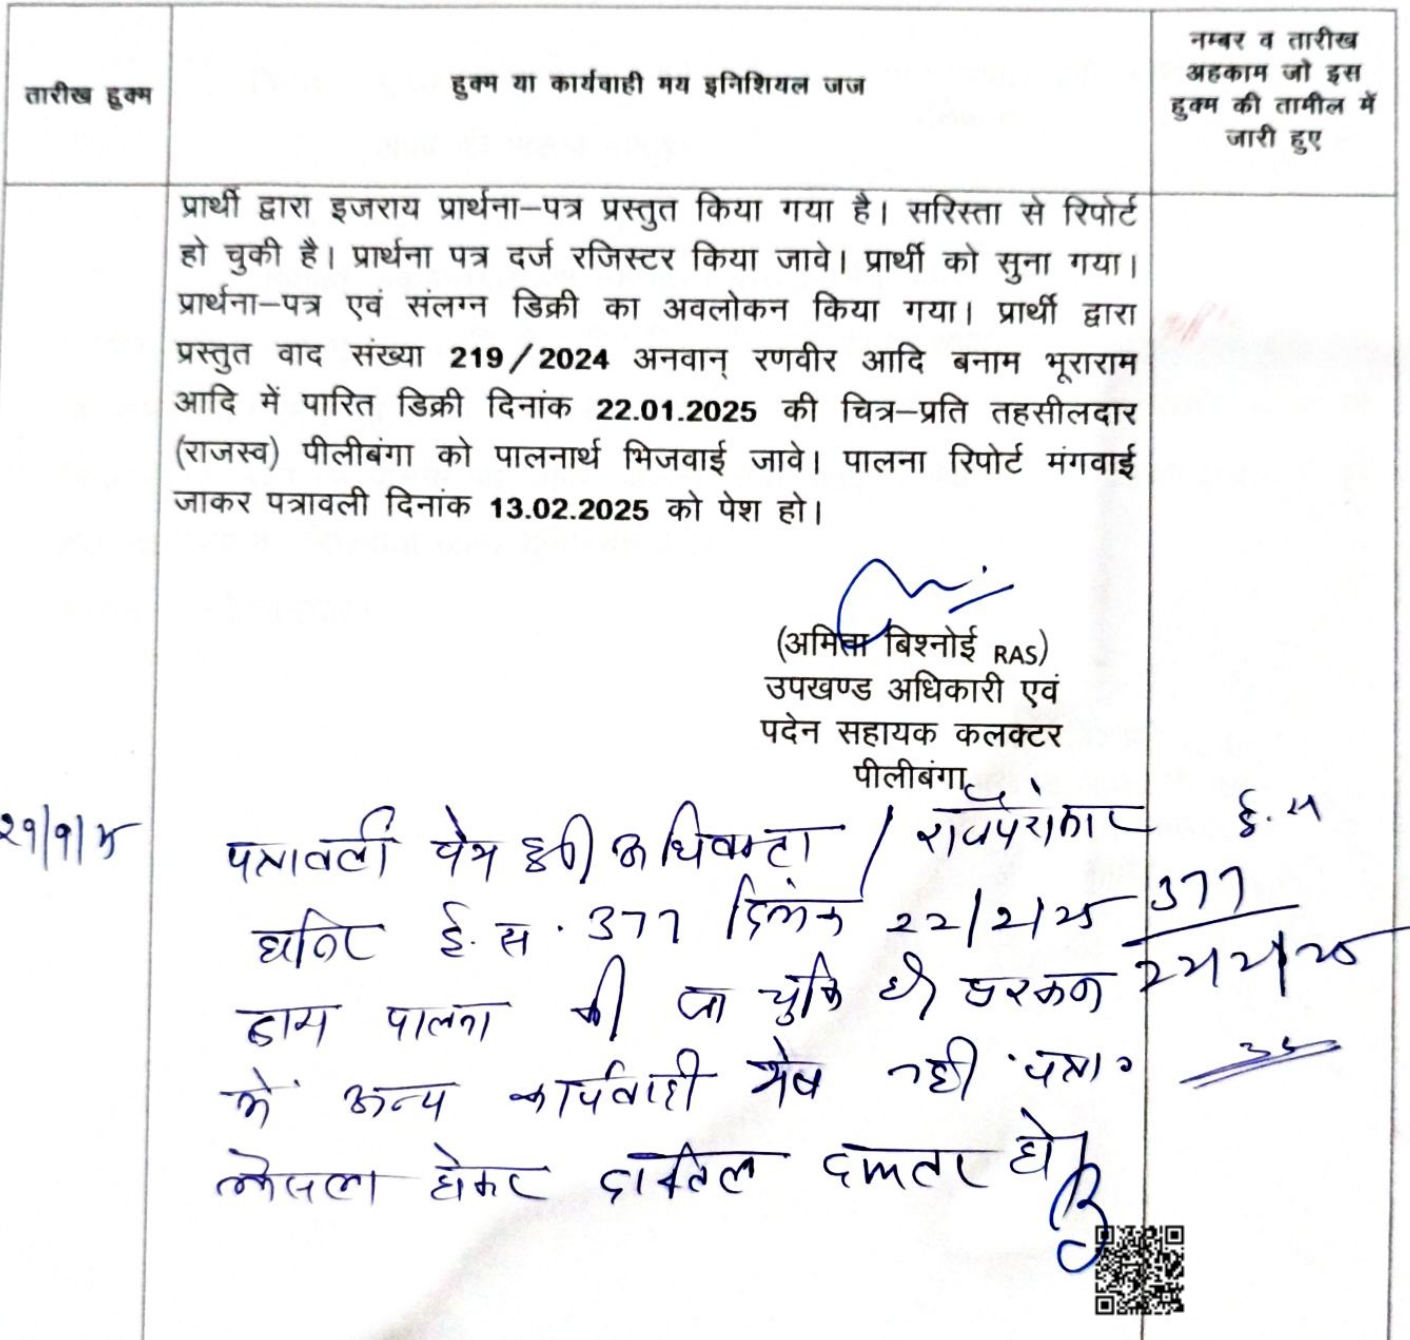 तारीख हुक्म
हुक्म या कार्यवाही मय इनिशियल जज
नम्बर व तारीख
अहकाम जो इस
हुक्म की तामील में
जारी हुए
प्रार्थी द्वारा इजराय प्रार्थना–पत्र प्रस्तुत किया गया है। सरिस्ता से रिपोर्ट
हो चुकी है। प्रार्थना पत्र दर्ज रजिस्टर किया जावे। प्रार्थी को सुना गया।
प्रार्थना–पत्र एवं संलग्न डिक्री का अवलोकन किया गया। प्रार्थी द्वारा
प्रस्तुत वाद संख्या 219/2024 अनवान् रणवीर आदि बनाम भूराराम
आदि में पारित डिक्री दिनांक 22.01.2025 की चित्र–प्रति तहसीलदार
(राजस्व) पीलीबंगा को पालनार्थ भिजवाई जावे। पालना रिपोर्ट मंगवाई
जाकर पत्रावली दिनांक 13.02.2025 को पेश हो।
(अमिता बिश्नोई RAS)
उपखण्ड अधिकारी एवं
पदेन सहायक कलक्टर
पीलीबंगा
पत्रावली पेश हुई अधिवक्ता /
ई. स
ई. स. 377 दिनांक 22/2/25
377
22/2/25
पालना की जा चुकि है
में अन्य कार्यवाही शेष नही पत्रा०
फैसला होकर दाखिल दफ्तर हो